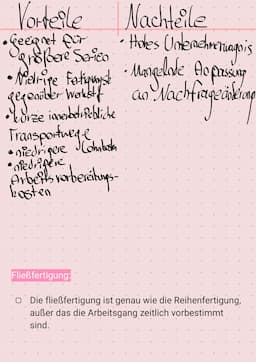 Vorteile
Nachteile
• Geeignet für
größere Serien
• Niedrige
gegenüber Werkstf
• kurze innerbetriebliche
Transportwege
• niedrigere
• niedrigere
Arbeitsvorbereitungs-
kosten
• Hohes Unternehmerungsris
• Mangelnde Anpassung
an Nachfrageänderung
Fließfertigung:
○ Die fließfertigung ist genau wie die Reihenfertigung,
außer das die Arbeitsgang zeitlich vorbestimmt
sind.